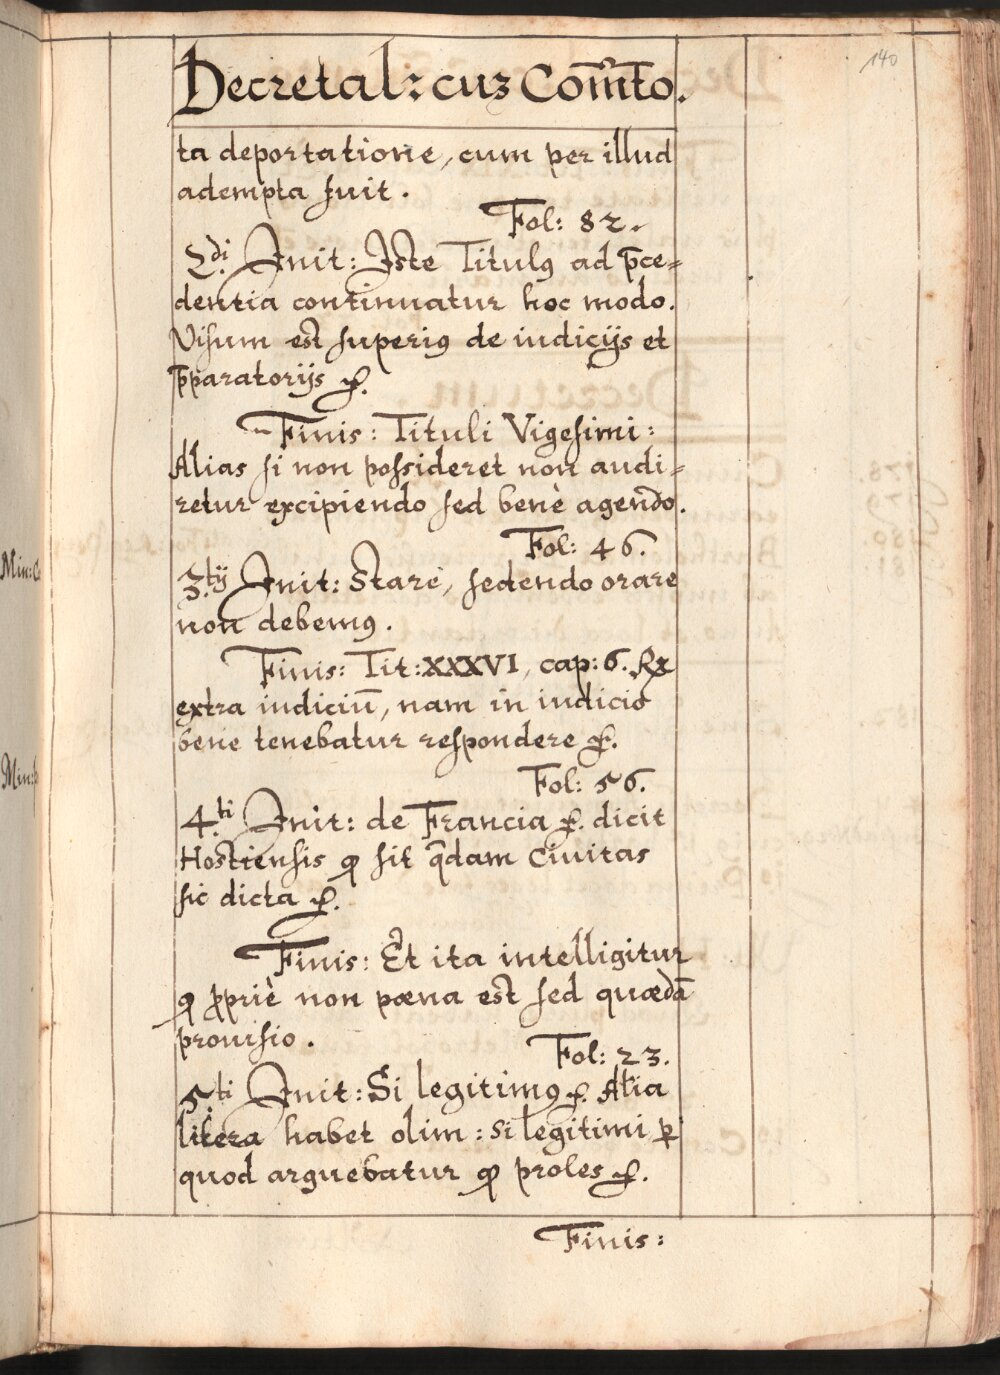 140
Decretal: cuz Com̄to.
ta deportatione, cum per illud
adempta fuit.
Fol: 82.
2di Init: Iste Titulꝰ ad p̄ce=
dentia continuatur hoc modo.
Visum est superiꝰ de iudicijs et
p̄paratorijs &.
Finis: Tituli Vigesimi:
Alias si non possideret non audi=
retur excipiendo sed benè agendo.
Fol: 46.
3tij Init: Starè, sedendo orare
non debemꝰ.
Finis: Tit: XXXVI, cap: 6. Rx
extra iudiciū, nam in iudicio
bene tenebatur respondere &.
Fol: 56.
4ti Init: de Francia &. dicit
Hostiensis ꝙ sit q̄dam Ciuitas
sic dicta &.
Finis: Et ita intelligitur
ꝙ ꝓpriè non pœna est sed quædā
prouisio.
Fol: 23.
5ti Init: Si legitimꝰ &. Alia
litera habet olim: si legitimi ꝑ
quod arguebatur ꝙ proles &.
Finis: